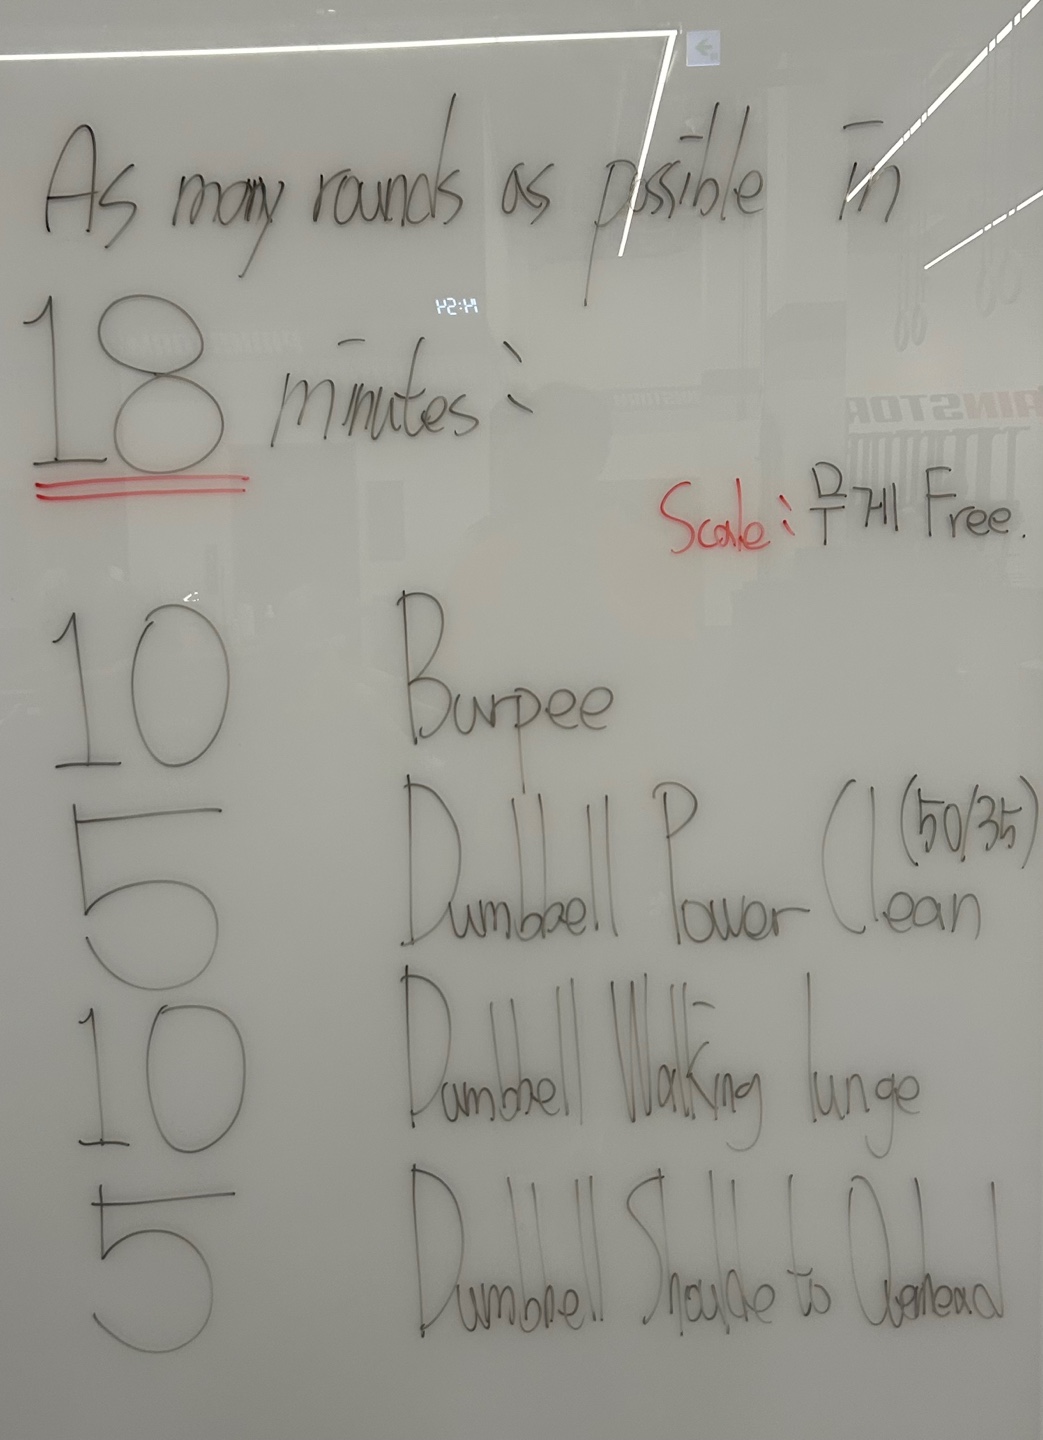 As many rounds as possible in
18 minutes :
Scale : 무게 Free.
10 Burpee
5 Dumbbell Power Clean (50/35)
10 Dumbbell Walking lunge
5 Dumbbell Shoulde to Overhead